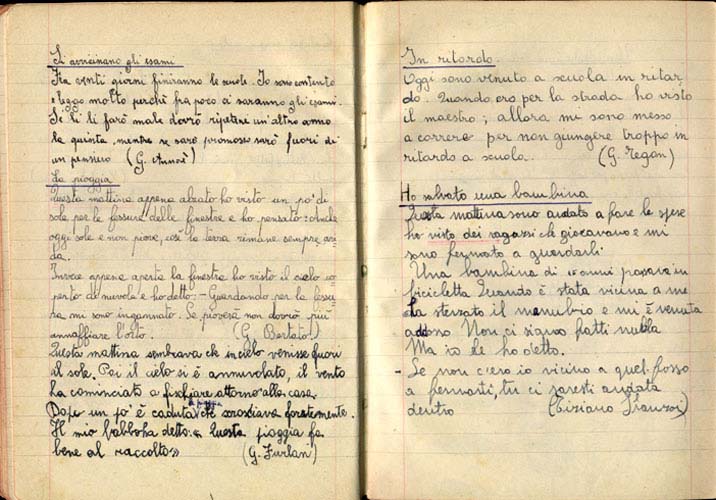 Si avvicinano gli esami
Fra venti giorni finiranno le scuole. Io sono contento
e leggo molto perchè fra poco ci saranno gli esami.
Se li farò male dovrò ripetere un'altro anno
la quinta, mentre se sarò promosso sarò fuori di
un pensiero (G.
La pioggia
Questa mattina appena alzato ho visto un po' di
sole per le fessure delle finestre e ho pensato: Anche
oggi sole e non piove, così la terra rimane sempre ari
da.
Invece appena aperta la finestra ho visto il cielo co
perto di nuvole e ho detto: - Guardando per la fessu
ra mi sono ingannato. Se pioverà non dovrò più
annaffiare l'orto. (G. Bortato)
Questa mattina sembrava che in cielo venisse fuori
il sole. Poi il cielo si è annuvolato, il vento
ha cominciato a fischiare attorno alla casa.
Dopo un po' è caduta la pioggia che scrosciava fortemente.
Il mio babbo ha detto: « Questa pioggia fa
bene al raccolto » (G. Furlan)
In ritardo.
Oggi sono venuto a scuola in ritar
do. Quando ero per la strada ho visto
il maestro; allora mi sono messo
a correre per non giungere troppo in
ritardo a scuola. (G. Tegon)
Ho salvato una bambina
Questa mattina sono andato a fare le spese
ho visto dei ragazzi che giocavano e mi
sono fermato a guardarli.
Una bambina di anni passava in
bicicletta Quando è stata vicina a me
ha sterzato il manubrio e mi è venuta
addosso. Non ci siamo fatti nulla
Ma io le ho detto.
- Se non c'ero io vicino a quel fosso
a fermarti, tu ci saresti andata
dentro (Tiziano